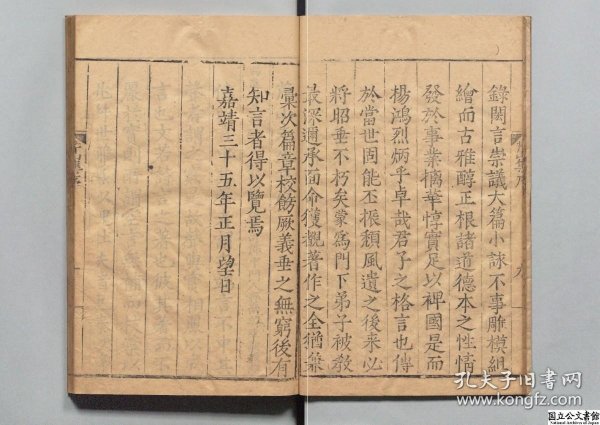 錄閎言崇議大篇小詠不事雕模組
繪而古雅醇正根諸道德本之性情
發於事業摛華惇實足以裨國是而
楊鴻烈炳乎卓哉君子之格言也傳
於當世固能丕振頹風遺之後来必
將昭垂不朽矣業爲門下弟子被教
最深邇承面命獲觀著作之全猶槩
彙次篇章校飭厥義垂之無窮後有
知言者得以覽焉
嘉靖三十五年正月望日
孔夫子旧书网
www.kongfz.com
国立公文書館
National Archives of Japan